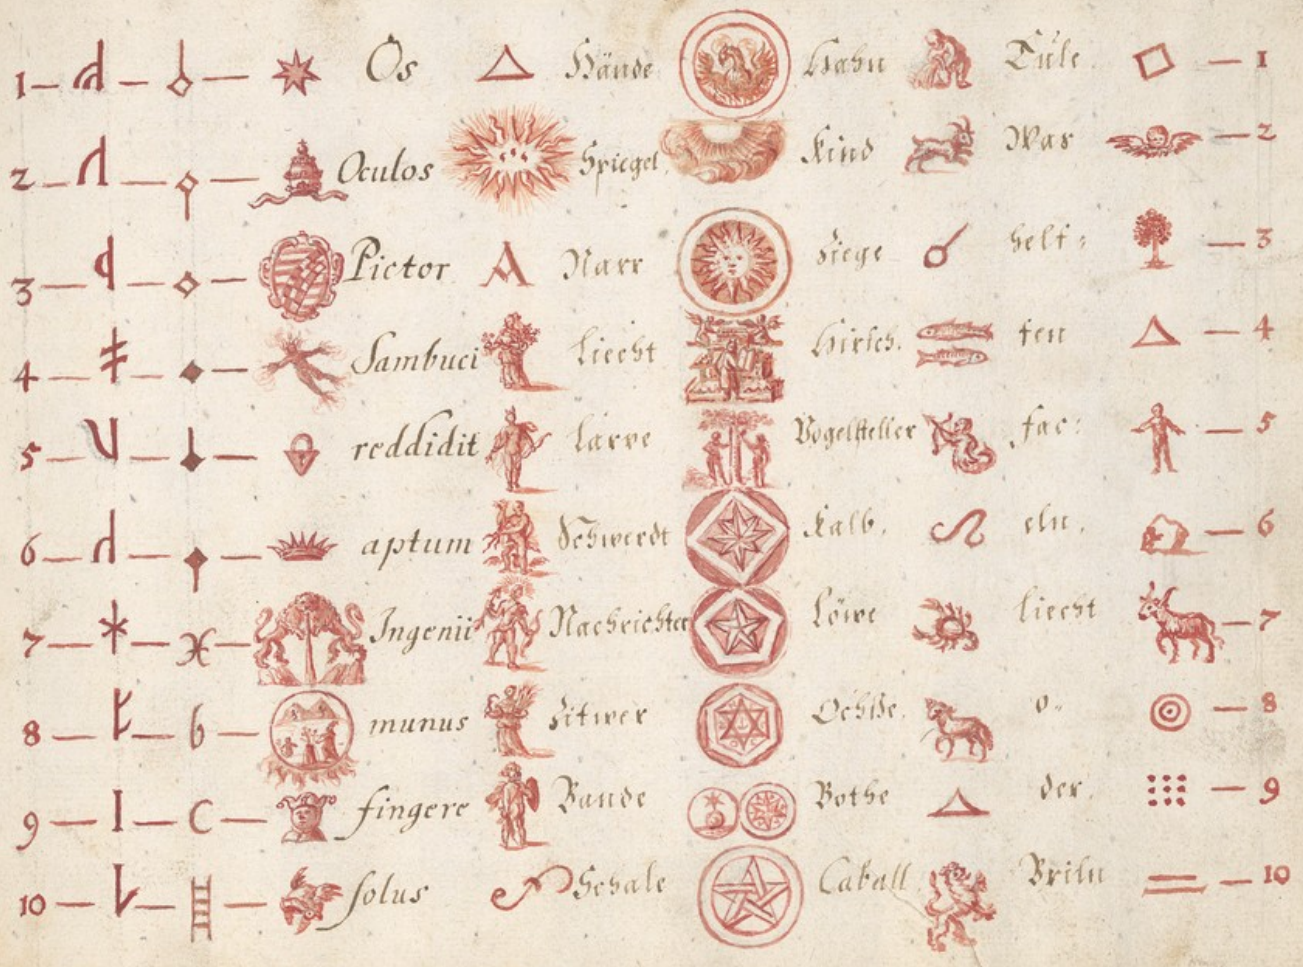 1 Os Hände Hahn Eüle 1
2 Oculos Spiegel. Kind Was 2
3 Pictor Narr Ziege helf= 3
4 Sambuci Liecht Hirsch. fen 4
5 reddidit Larve Vogelsteller fac: 5
6 aptum Schwerdt Kalb. eln. 6
7 Ingenii Nachrichter Löwe liecht 7
8 b munus Zitwer Ochße. o= 8
9 C fingere Bande Bothe der 9
10 solus Schale Caball Briln 10